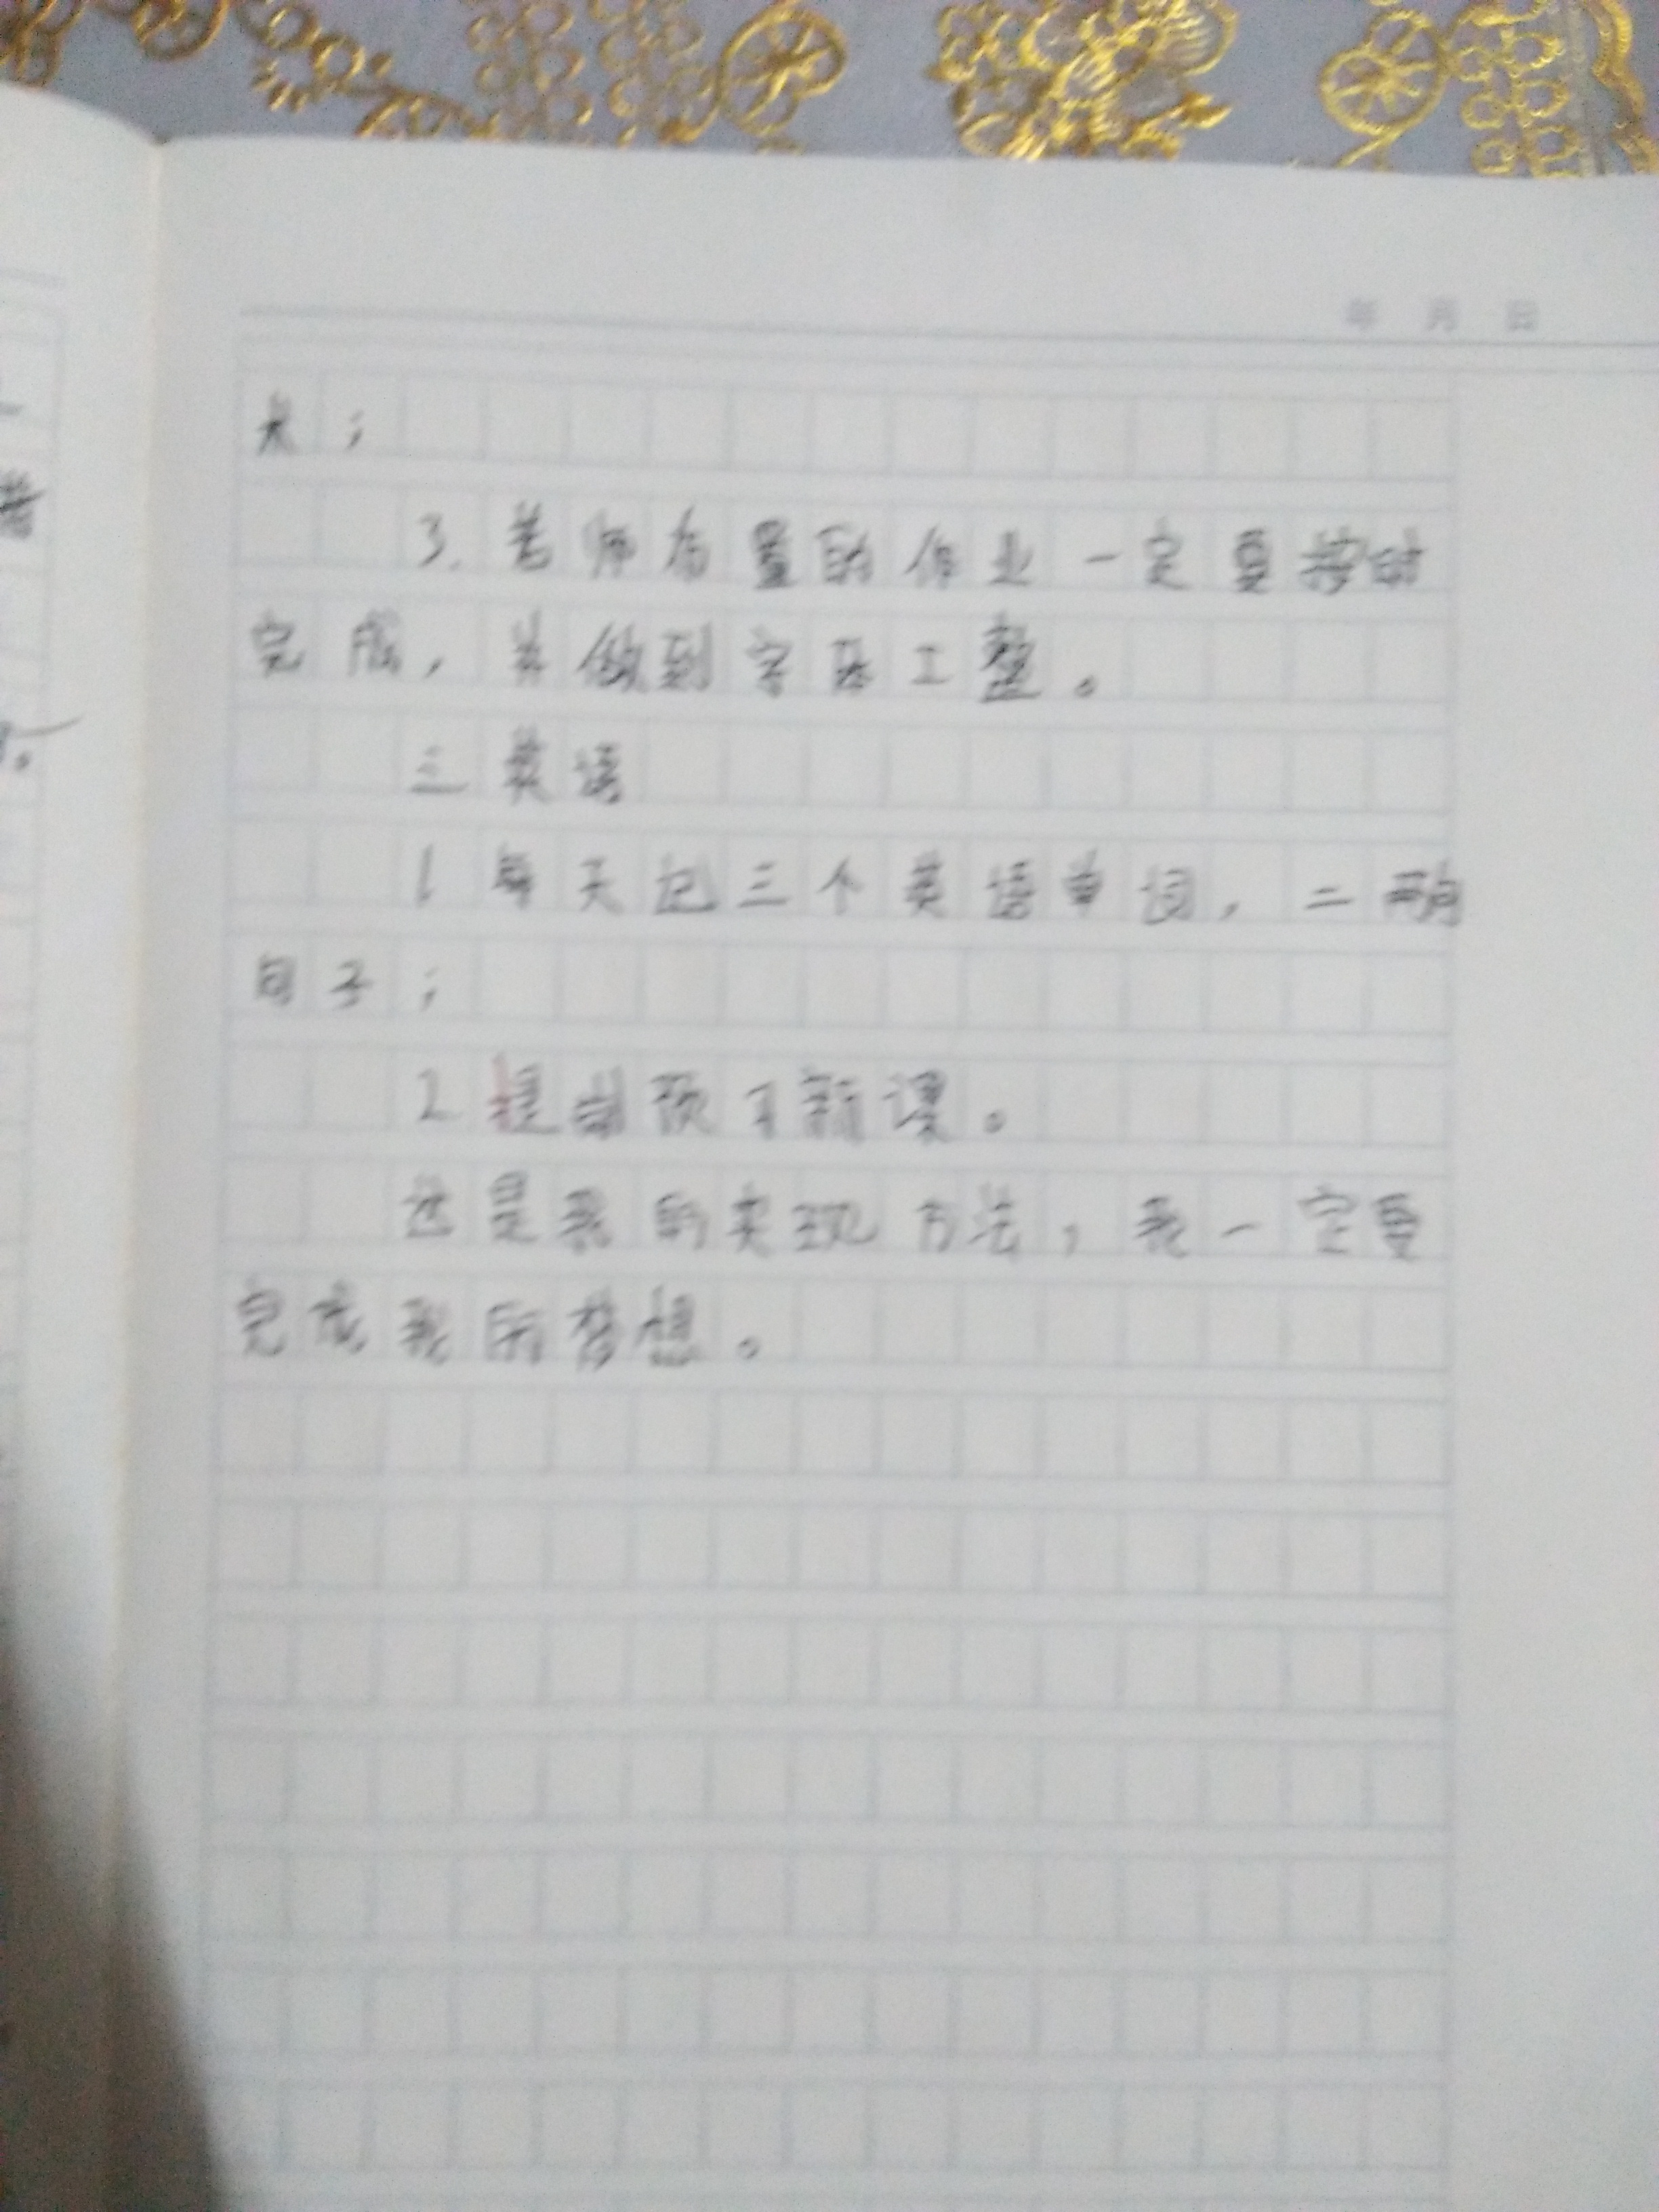 年 月 日
;
3. 老师布置的作业一定要按时
完成,并做到字跡工整。
三英语
1 每天记三个英语单词,二两句
句子;
2 提前预习新课。
这是我的实现方法,我一定要
完成我的梦想。